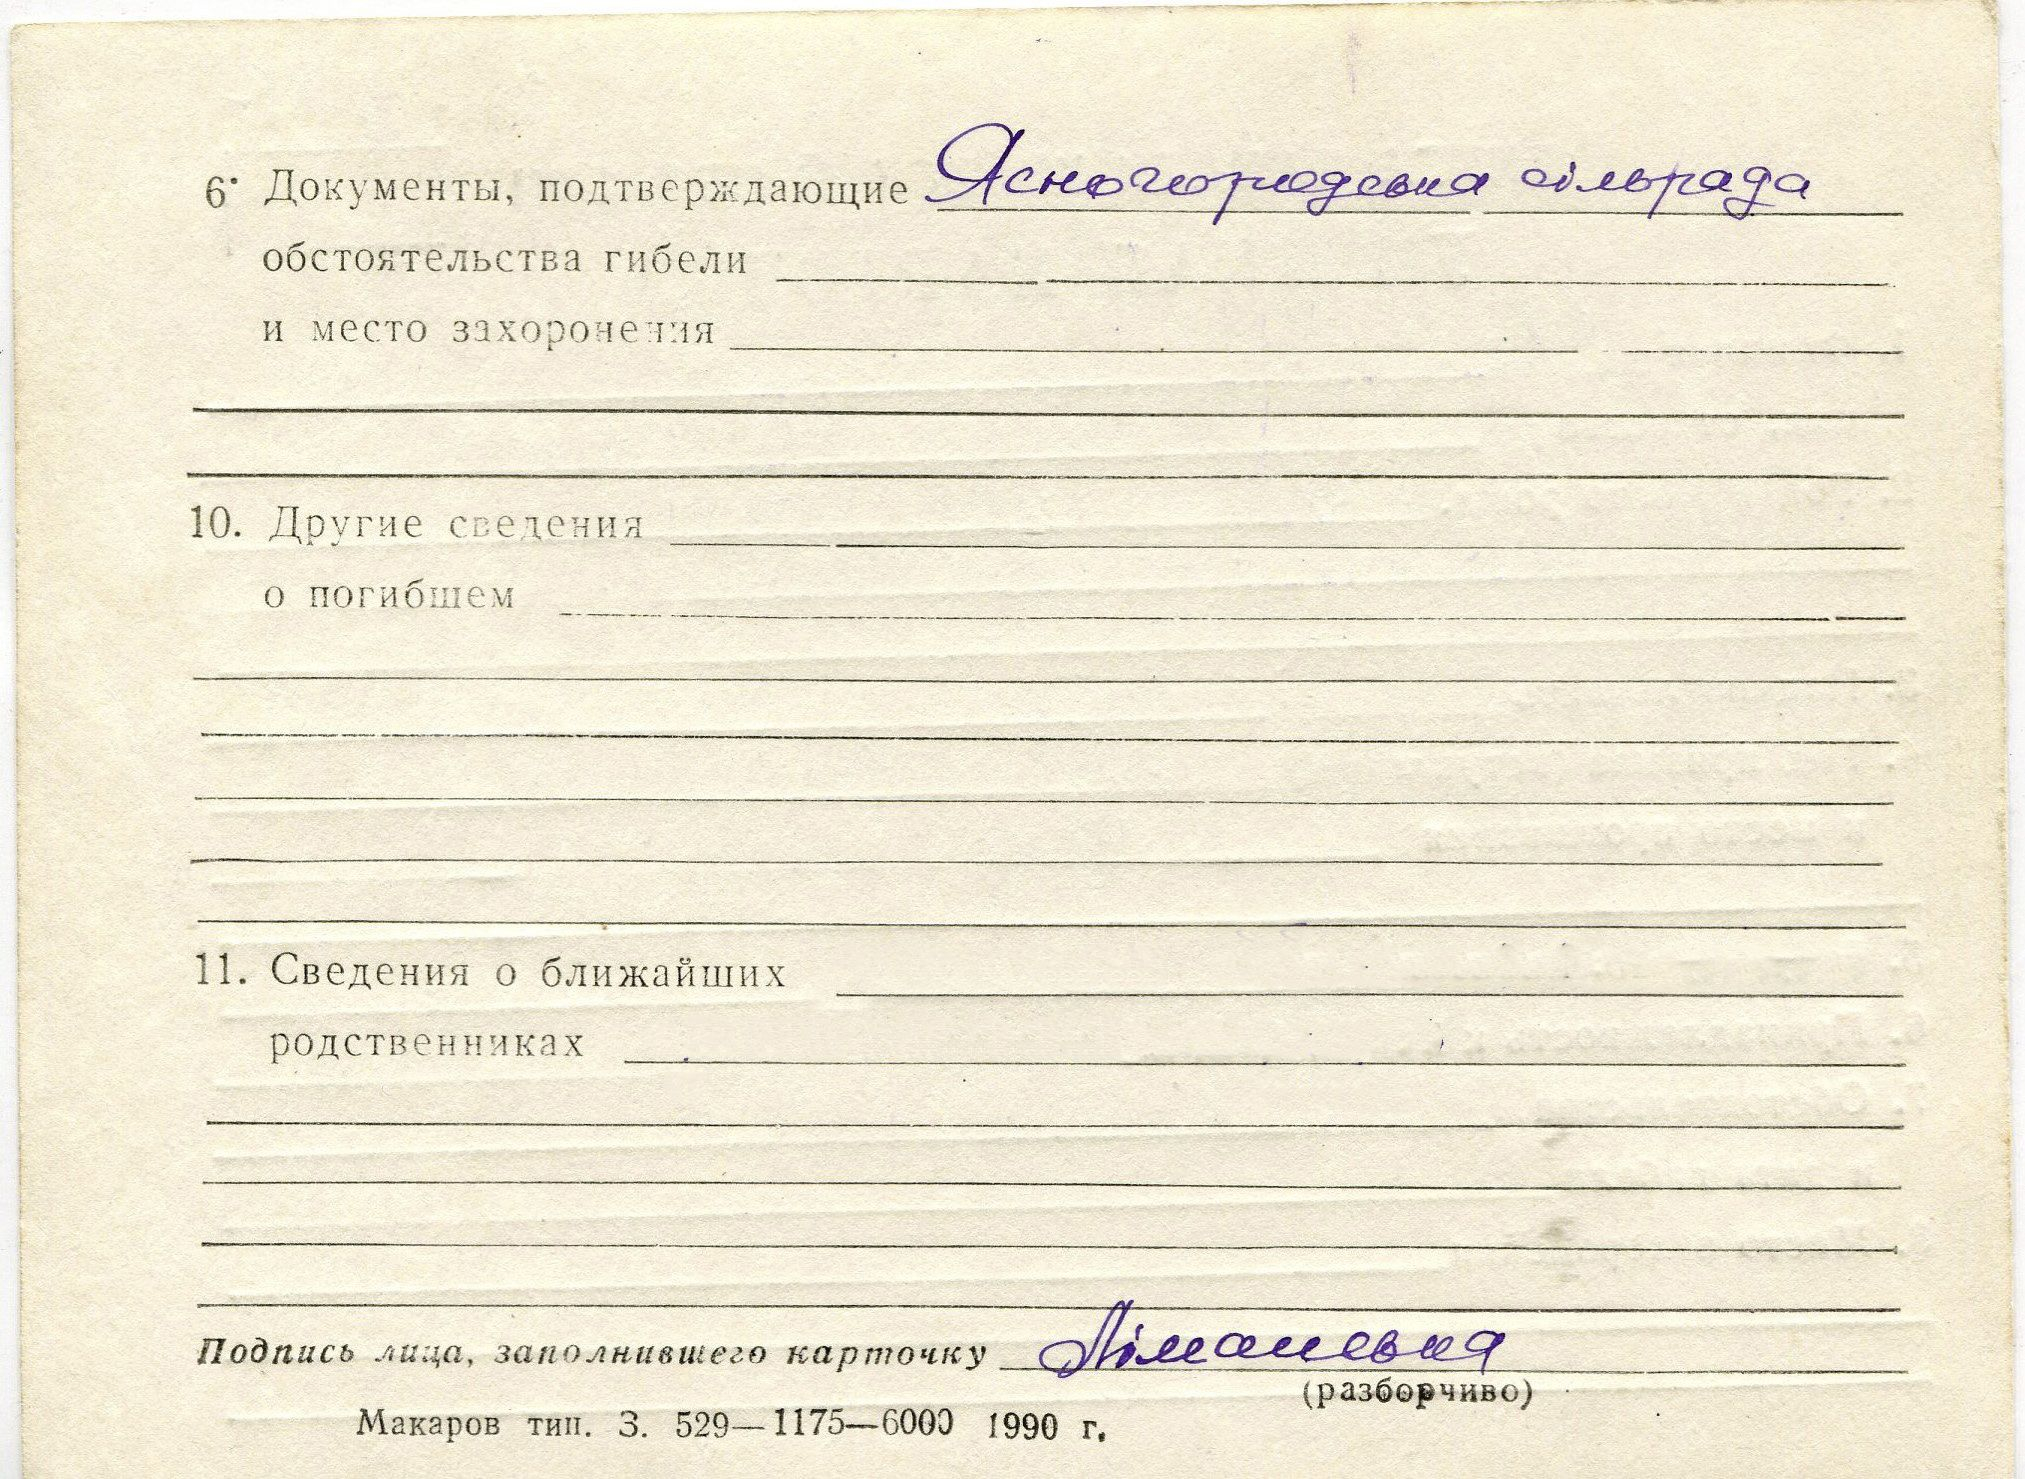 6. Документы, подтверждающие Ясногородська сільрада
обстоятельства гибели
и место захоронения
10. Другие сведения
о погибшем
11. Сведения о ближайших
родственниках
Подпись лица, заполнившего карточку
(разборчиво)
Макаров тип. З. 529—1175—6000 1990 г.